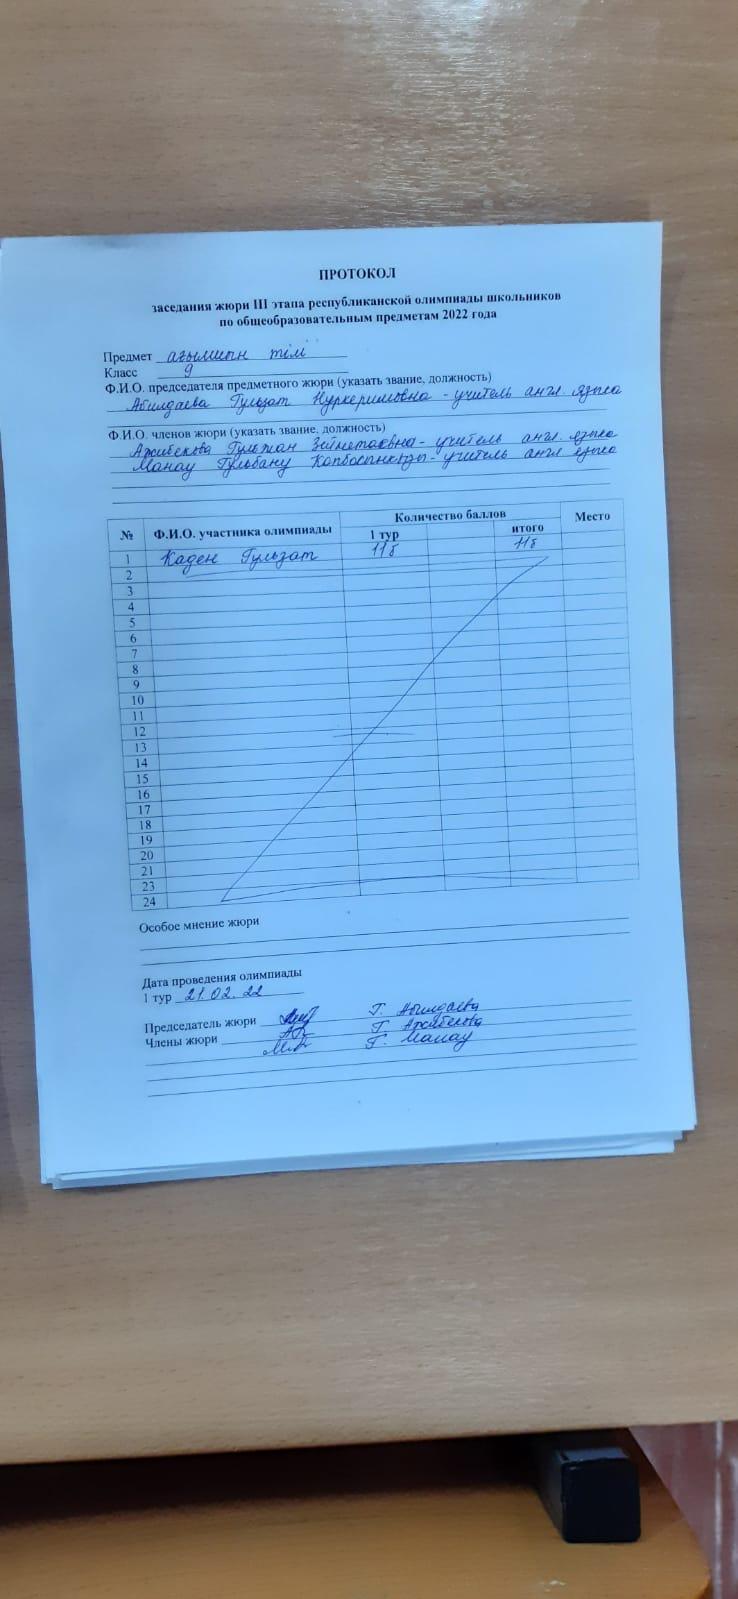 ПРОТОКОЛ
заседания жюри III этапа республиканской олимпиады школьников
по общеобразовательным предметам 2022 года
Предмет ағылшын тілі
Класс 9
Ф.И.О. председателя предметного жюри (указать звание, должность)
Абилдаева Гульзат Нуркеримовна - учитель англ. языка
Ф.И.О. членов жюри (указать звание, должность)
Аржибекова Гульжан - учитель англ. языка
Манау Гульбану - учитель англ языка
№ Ф.И.О. участника олимпиады Количество баллов Место
1 тур итого
1 Каден Гульзат 11б 11б
2
3
4
5
6
7
8
9
10
11
12
13
14
15
16
17
18
19
20
21
23
24
Особое мнение жюри
Дата проведения олимпиады
1 тур 21.02.22
Председатель жюри Г. Абилдаева
Члены жюри Г. Аржибекова
Г. Манау